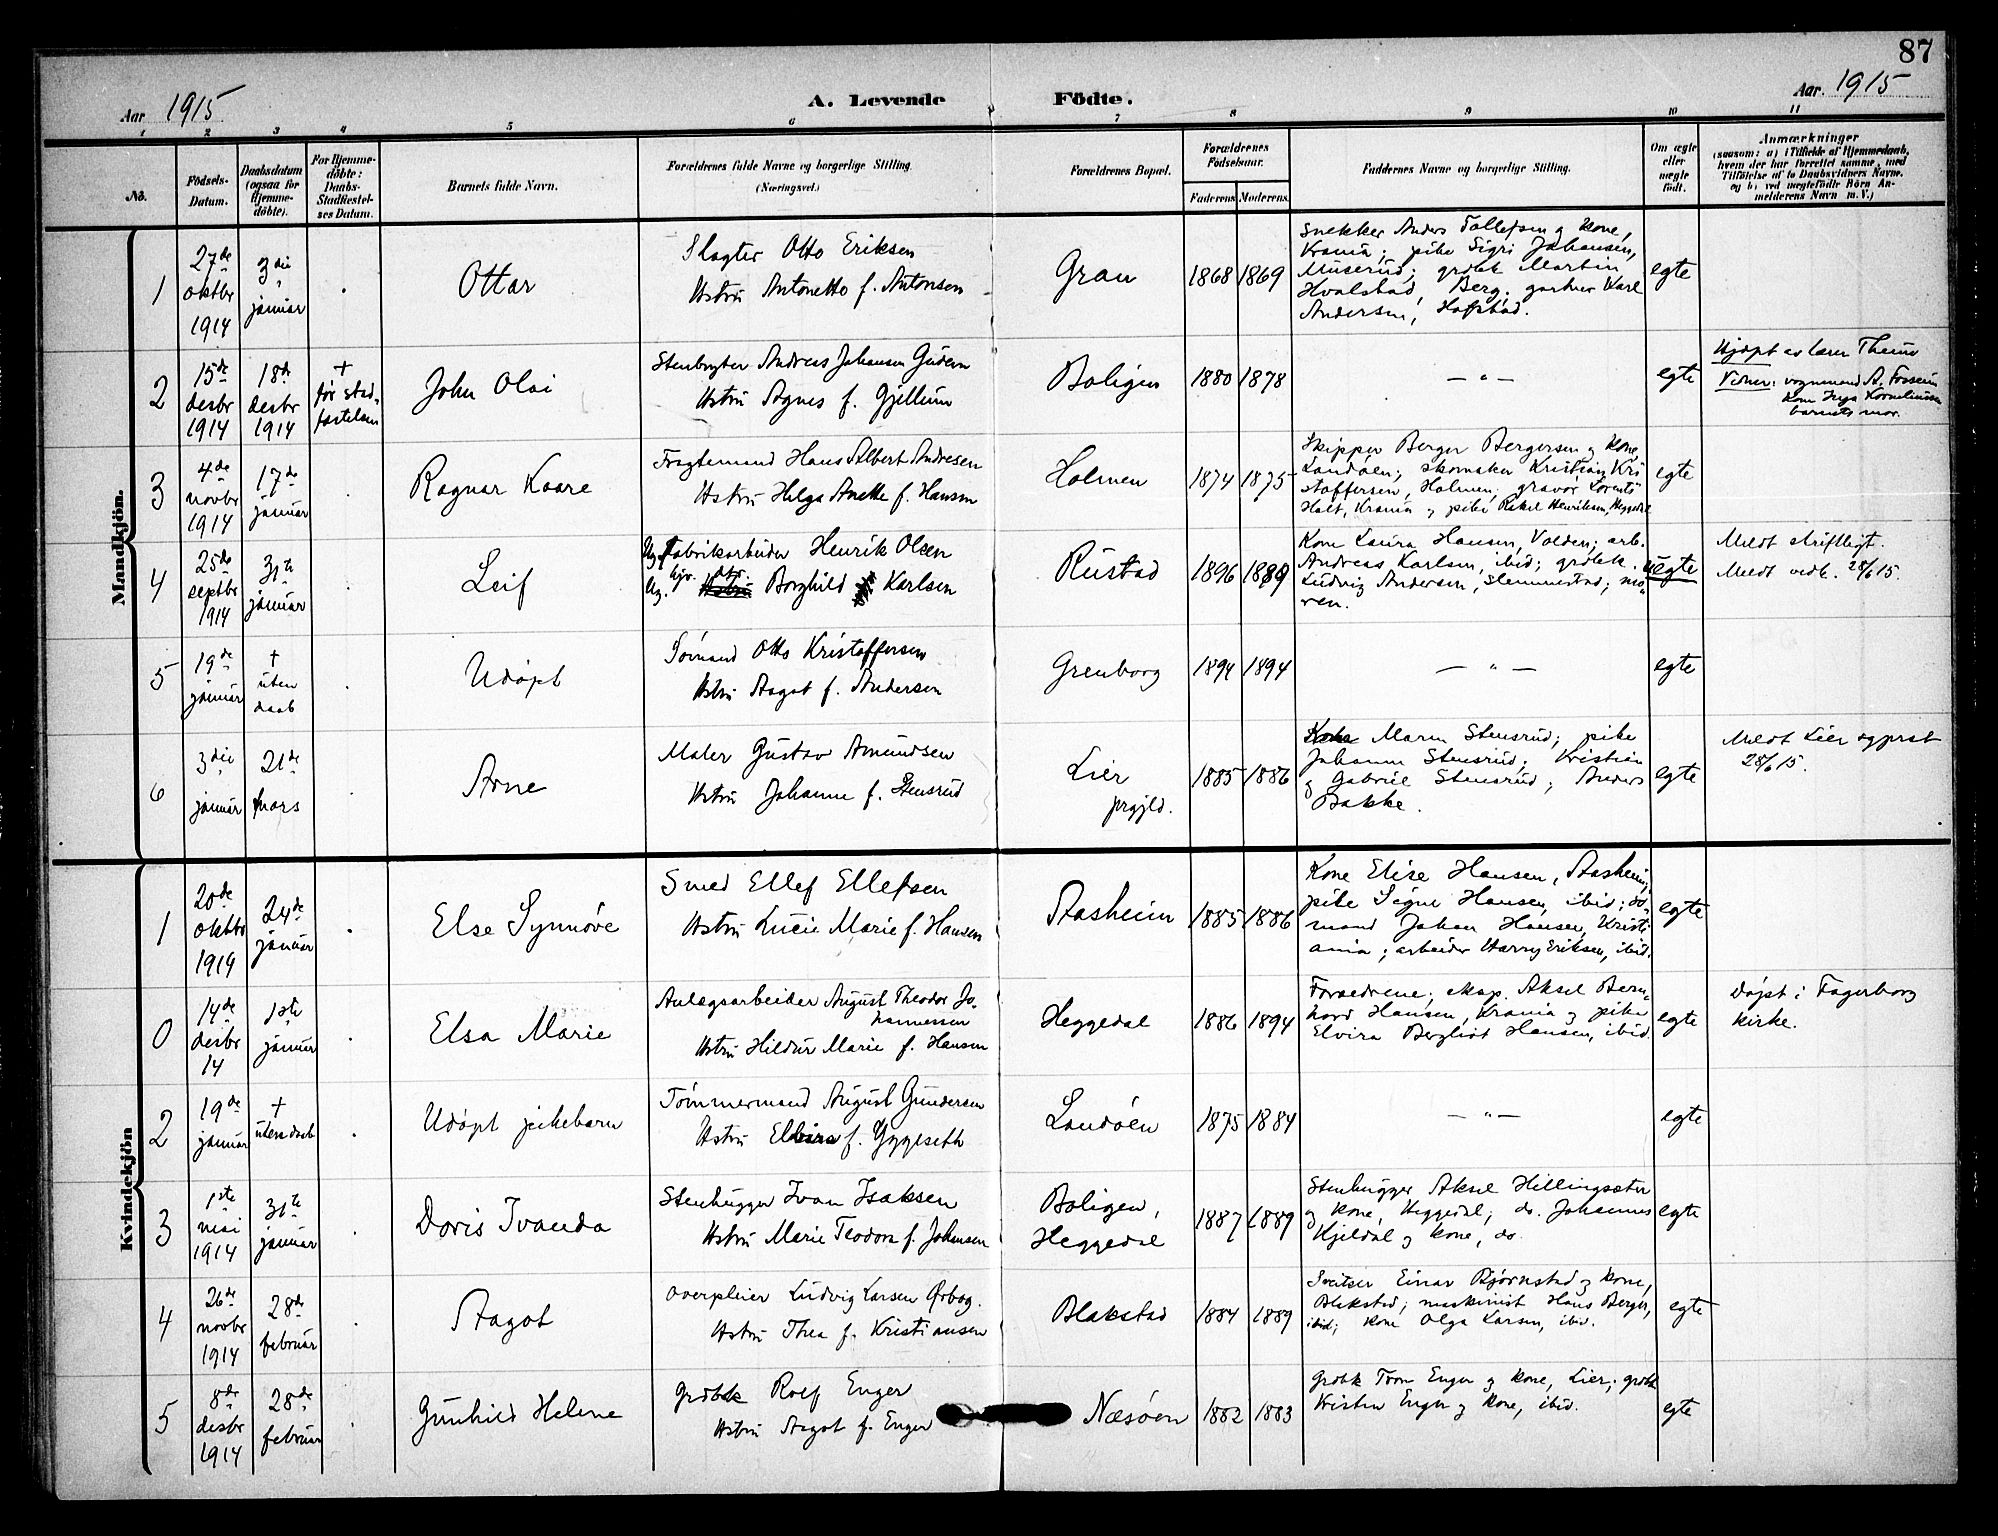 87
Aar 1915.
A. Levende Födte.
Aar. 1915
1 2 3 4 5 6 7 8 9 10 11
No.
Födsels-
Datum.
Daabsdatum
(ogsaa for
Hjemme-
döbte).
For Hjemme-
döbte:
Daabs-
Stadfæstel-
ses Datum.
Barnets fulde Navn.
Forældrenes fulde Navne og borgerlige Stilling.
(Næringsvei.)
Forældrenes Bopæl.
Forældrenes
Födselsaar.
Faderens
Moderens.
Faddernes Navne og borgerlige Stilling.
Om ægte
eller
uægte
födt.
Anmærkninger
(saasom: a) i Tilfælde af Hjemmedaab,
hvem der har forrettet samme, med
Tilföielse af to Daabsvidners Navne,
og b) ved uægtefödte Börn An-
melderens Navn m. V.)
Mandkjön.
1
27de
oktbr
1914
3die
januar
Ottar
Slagter Otto Eriksen
Hstru Antonette f. Antonsen
Grau
1868 1869
Snekker Anders Tollefsen og kone,
Krania; pike Sigri Johansen,
Muserud; grdbk Martin
Hvalstad, Berg; gartner Karl
Andersen, Hofstad.
egte
2
15de
desbr
1914
18de
desbr
1914
+
før stad-
festelsen
John Olai
Stenbryter Andreas Johansen
Hstru Agnes f. Gjellum
Boligen
1880 1878
— " —
egte
Hjdøpt av lærer
Vidner: vognmand A.
kone Inga Korneliussen
barnets mor.
3
4de
novbr
1914
17de
januar
Ragnar Kaare
Fragtemand Hans Albert Andresen
Hstru Helga Anette f. Hansen
Holmen
1874 1875
Skipper Berger Bergersen og kone,
Landøen; skomaker Kristian Kri-
stoffersen, Holmen; gravør Lorents
Holt, Krania og pike Rakel Henriksen, Heggedal
egte
4
25de
septbr
1914
31te
januar
Leif
Ug. fabrikarbeider Henrik Olsen
Ug. Hstru Borghild Karlsen
Rustad
1896 1889
Kone Laura Hansen, Volden; arb.
Andreas Karlsen, ibid; grdbk.
Ludvig Andersen, Slemmestad; mo-
ren.
uegte
Meldt skriftligt.
Meldt vedk. 28/6 15.
5
19de
januar
+
uten
daab
Udøpt
Sømand Otto Kristoffersen
Hstru Aagot f. Andersen
Grenborg
1894 1894
— " —
egte
6
3die
januar
21de
mars
Arne
Maler Gustav Amundsen
Hstru Johanne f. Stensrud
Lier
prgjld.
1885 1886
Maren Stensrud; pike
Johanne Stensrud; Kristian
og Gabriel Stensrud; Anders
Bakke.
egte
Meldt Lier sogneprest
28/6 15.
Kvindekjön
1
20de
oktbr
1914
24de
januar
Else Synnøve
Smed Ellef Ellefsen
Hstru Lucie Marie f. Hansen
Aasheim
1885 1886
Kone Elise Hansen, Aasheim;
pike Signe Hansen, ibid; sø-
mand Johan Hansen, Kristi-
ania; arbeider Harry Eriksen, ibid.
egte
0
14de
desbr
14
1ste
januar
Elsa Marie
Anlægsarbeider August Theodor Jo-
hannessen
Hstru Hildur Marie f. Hansen
Heggedal
1886 1894
Forældrene; eksp. Aksel Bern-
hard Hansen, Krania og pike
Elvira Bergliot Hansen, ibid.
egte
Døpt i Fagerborg
kirke.
2
19de
januar
+
uten daab
Udøpt pikebarn
Tømmermand August Gundersen
Hstru f. Yggeseth
Landøen
1875 1884
— " —
egte
3
1ste
mai
1914
31te
januar
Doris Ivanda
Stenhugger Ivan Isaksen
Hstru Marie Teodora f. Johansen
Boligen,
Heggedal
1887 1889
Stenhugger Aksel Hillingsæter
og kone, Heggedal; do. Johannes
Kjeldal og kone, do.
egte
4
26de
novbr
1914
28de
februar
Aagot
Overpleier Ludvig Larsen Ørbog.
Hstru Thea f. Kristiansen
Blakstad
1884 1889
Sveitser Einar Bjørnstad og kone,
Blakstad; maskinist Hans Berger,
ibid; kone Olga Larsen, ibid.
egte
5
8de
desbr
1914
28de
februar
Gunhild Helene
Grdbk Rolf Enger
Hstru Aagot f. Enger
Næsøen
1882 1883
Grdbk Tron Enger og kone, Lier; grdbk
Kristen Enger og kone, ibid.
egte